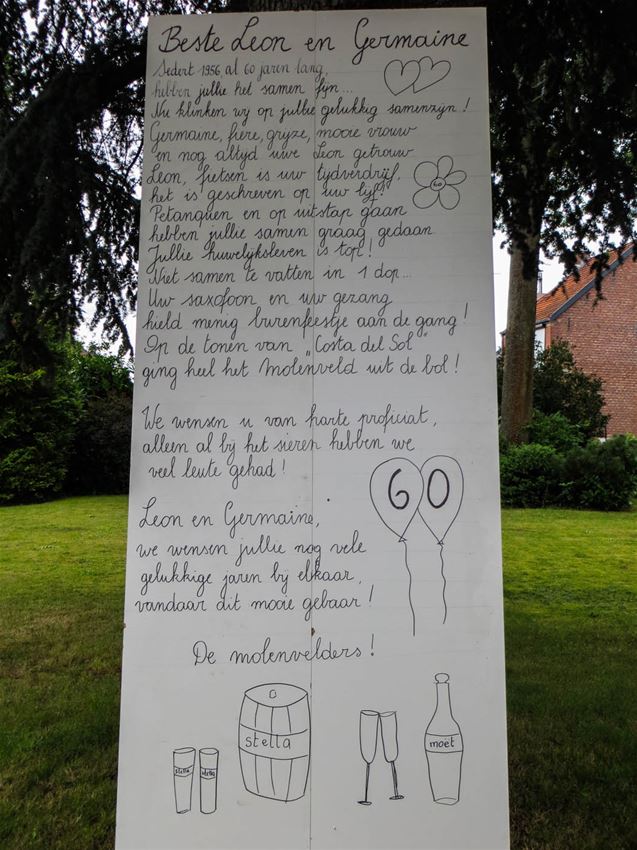 Beste Leon en Germaine
Sedert 1956, al 60 jaren lang,
hebben jullie het samen fijn...
Nu klinken wij op jullie gelukkig samenzijn!
Germaine, fiere, grijze, mooie vrouw
en nog altijd uwe Leon getrouw
Leon, fietsen is uw tijdverdrijf,
het is geschreven op uw lijf!
60
Petanquen en op uitstap gaan
hebben jullie samen graag gedaan
Jullie huwelijksleven is top!
Niet samen te vatten in 1 dop...
Uw saxofoon en uw gezang
hield menig burenfeestje aan de gang!
Op de tonen van "Costa del Sol"
ging heel het Molenveld uit de bol!
We wensen u van harte proficiat,
alleen al bij het sieren hebben we
veel leute gehad!
60
Leon en Germaine,
we wensen jullie nog vele
gelukkige jaren bij elkaar,
vandaar dit mooie gebaar!
De molenvelders!
stella
stella
stella
moët